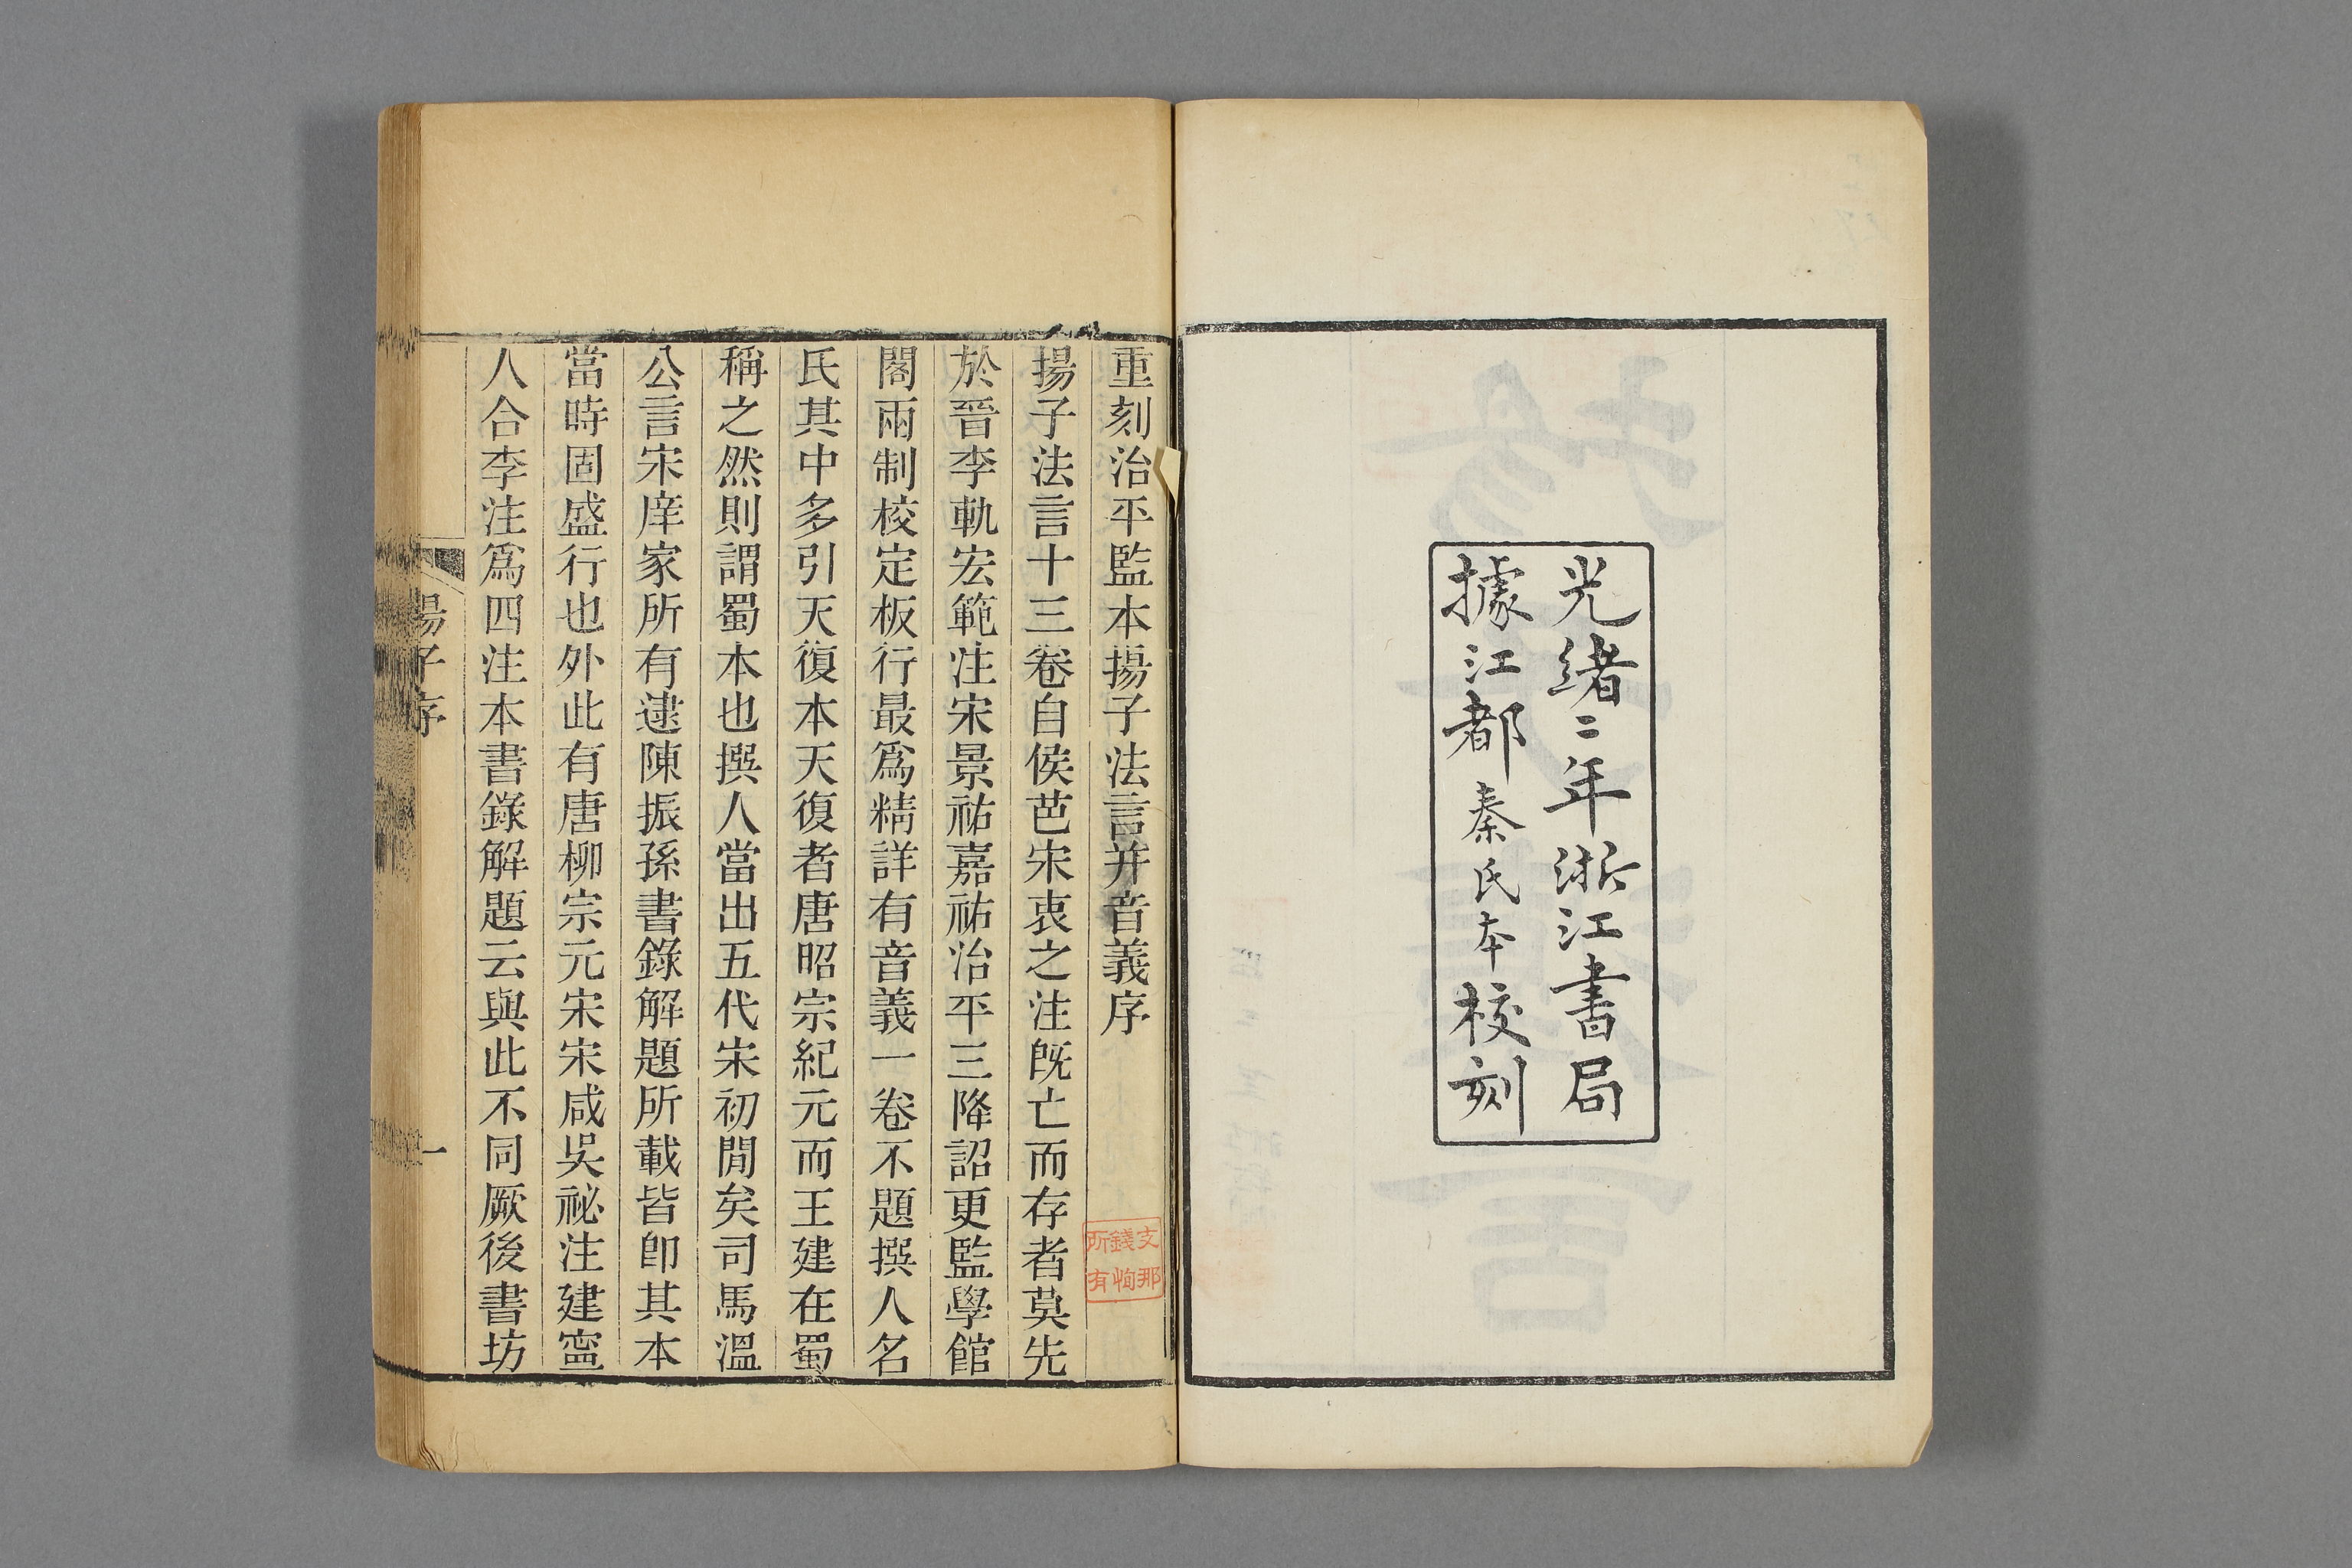 光緒二年浙江書局
據江都秦氏本校刻
重刻治平監本揚子法言并音義序
揚子法言十三卷自侯芭宋衷之注旣亡而存者莫先
於晉李軌宏範注宋景祐嘉祐治平三降詔更監學館
閣兩制校定板行最爲精詳有音義一卷不題撰人名
氏其中多引天復本天復者唐昭宗紀元而王建在蜀
稱之然則謂蜀本也撰人當出五代宋初閒矣司馬溫
公言宋庠家所有逮陳振孫書錄解題所載皆卽其本
當時固盛行也外此有唐柳宗元宋宋咸吳祕注建寧
人合李注爲四注本書錄解題云與此不同厥後書坊
揚子序
一
支那
錢恂
所有